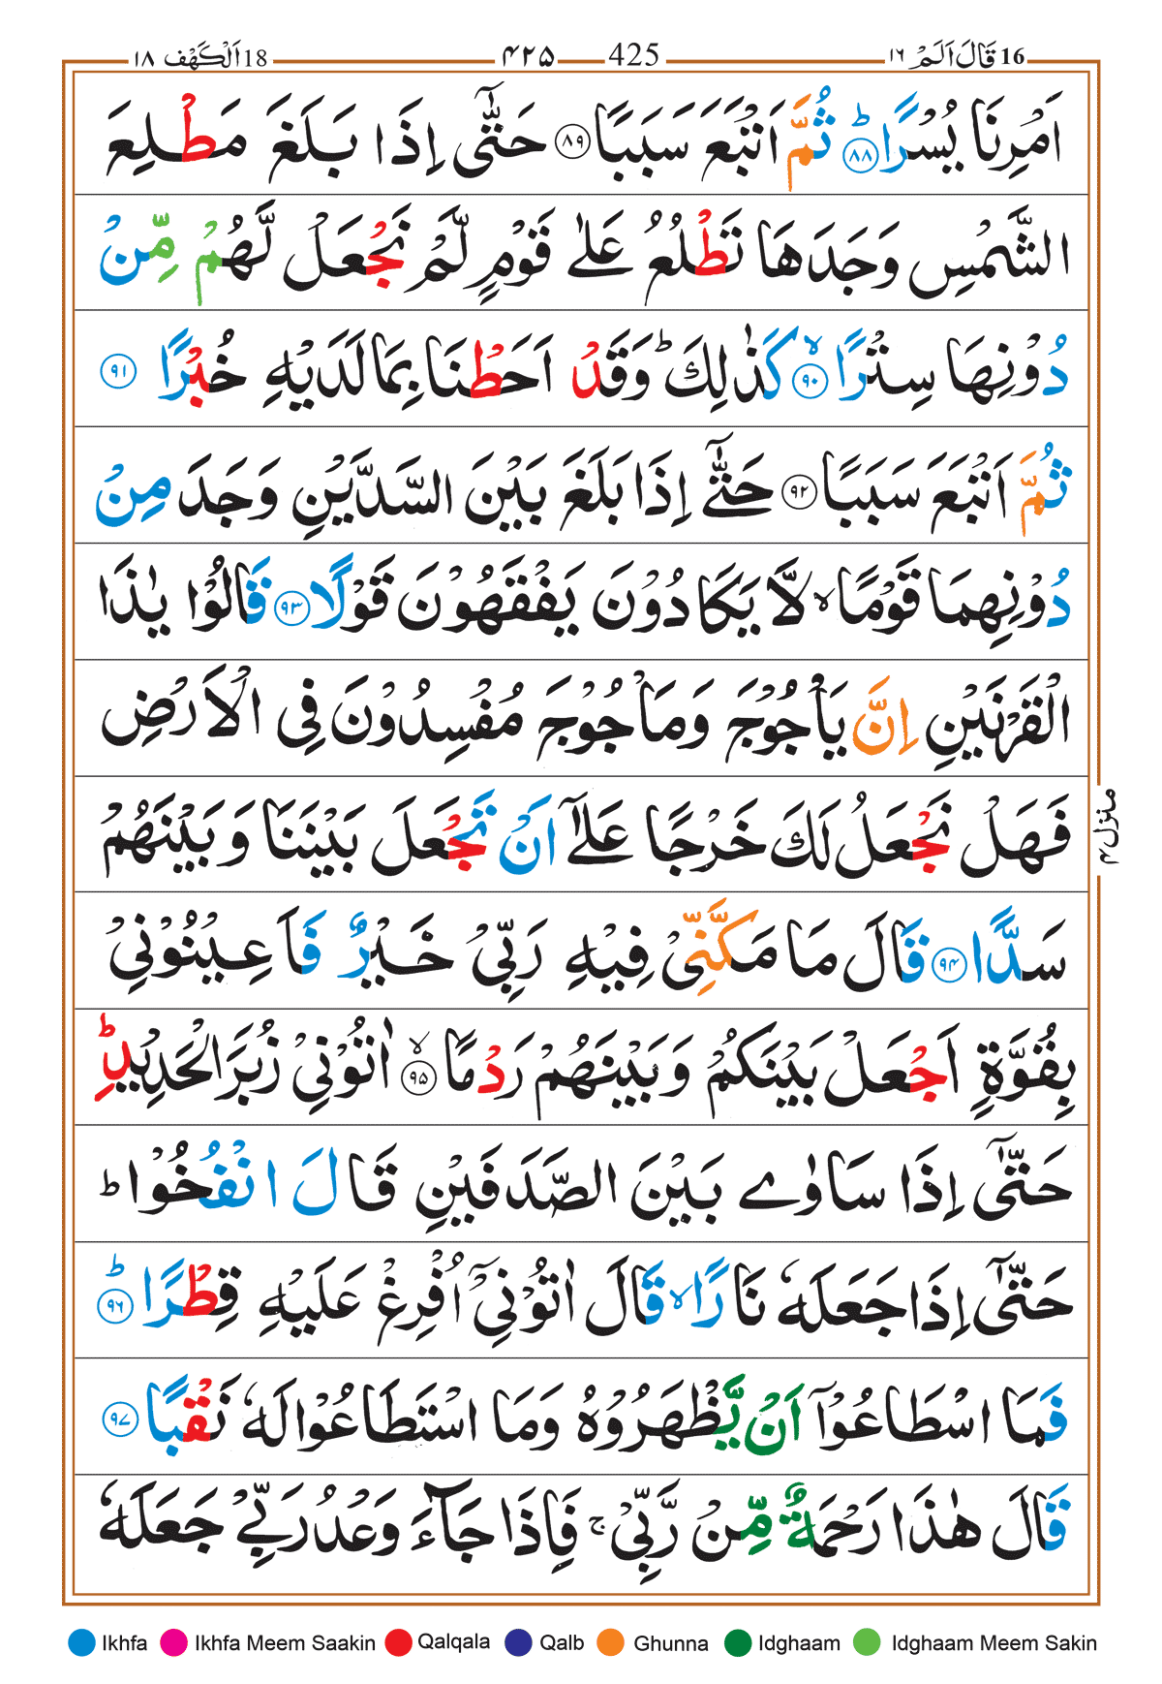 16 قَالَ اَلَمْ ١٦ 425 ۴۲۵ 18 اَلْكَهْف ١٨
اَمْرِنَا يُسْرًا ؕ ﴿۸۸﴾ ثُمَّ اَتْبَعَ سَبَبًا ﴿۸۹﴾ حَتّٰۤى اِذَا بَلَغَ مَطْلِعَ
الشَّمْسِ وَجَدَهَا تَطْلُعُ عَلٰى قَوْمٍ لَّمْ نَجْعَلْ لَّهُمْ مِّنْ
دُوْنِهَا سِتْرًا ۙ ﴿۹۰﴾ كَذٰلِكَ ؕ وَقَدْ اَحَطْنَا بِمَا لَدَيْهِ خُبْرًا ﴿۹۱﴾
ثُمَّ اَتْبَعَ سَبَبًا ﴿۹۲﴾ حَتّٰۤى اِذَا بَلَغَ بَيْنَ السَّدَّيْنِ وَجَدَ مِنْ
دُوْنِهِمَا قَوْمًا ۙ لَّا يَكَادُوْنَ يَفْقَهُوْنَ قَوْلًا ﴿۹۳﴾ قَالُوْا يٰذَا
الْقَرْنَيْنِ اِنَّ يَاْجُوْجَ وَمَاْجُوْجَ مُفْسِدُوْنَ فِى الْاَرْضِ
فَهَلْ نَجْعَلُ لَكَ خَرْجًا عَلٰۤى اَنْ تَجْعَلَ بَيْنَنَا وَبَيْنَهُمْ
سَدًّا ﴿۹۴﴾ قَالَ مَا مَكَّنِّىْ فِيْهِ رَبِّىْ خَيْرٌ فَاَعِيْنُوْنِىْ
بِقُوَّةٍ اَجْعَلْ بَيْنَكُمْ وَبَيْنَهُمْ رَدْمًا ۙ ﴿۹۵﴾ اٰتُوْنِىْ زُبَرَ الْحَدِيْدِ ؕ
حَتّٰۤى اِذَا سَاوٰى بَيْنَ الصَّدَفَيْنِ قَالَ انْفُخُوْا ؕ
حَتّٰۤى اِذَا جَعَلَهٗ نَارًا ۙ قَالَ اٰتُوْنِىْۤ اُفْرِغْ عَلَيْهِ قِطْرًا ؕ ﴿۹۶﴾
فَمَا اسْطَاعُوْۤا اَنْ يَّظْهَرُوْهُ وَمَا اسْتَطَاعُوْا لَهٗ نَقْبًا ﴿۹۷﴾
قَالَ هٰذَا رَحْمَةٌ مِّنْ رَّبِّىْ ۚ فَاِذَا جَآءَ وَعْدُ رَبِّىْ جَعَلَهٗ
منزل ۴
Ikhfa Ikhfa Meem Saakin Qalqala Qalb Ghunna Idghaam Idghaam Meem Sakin